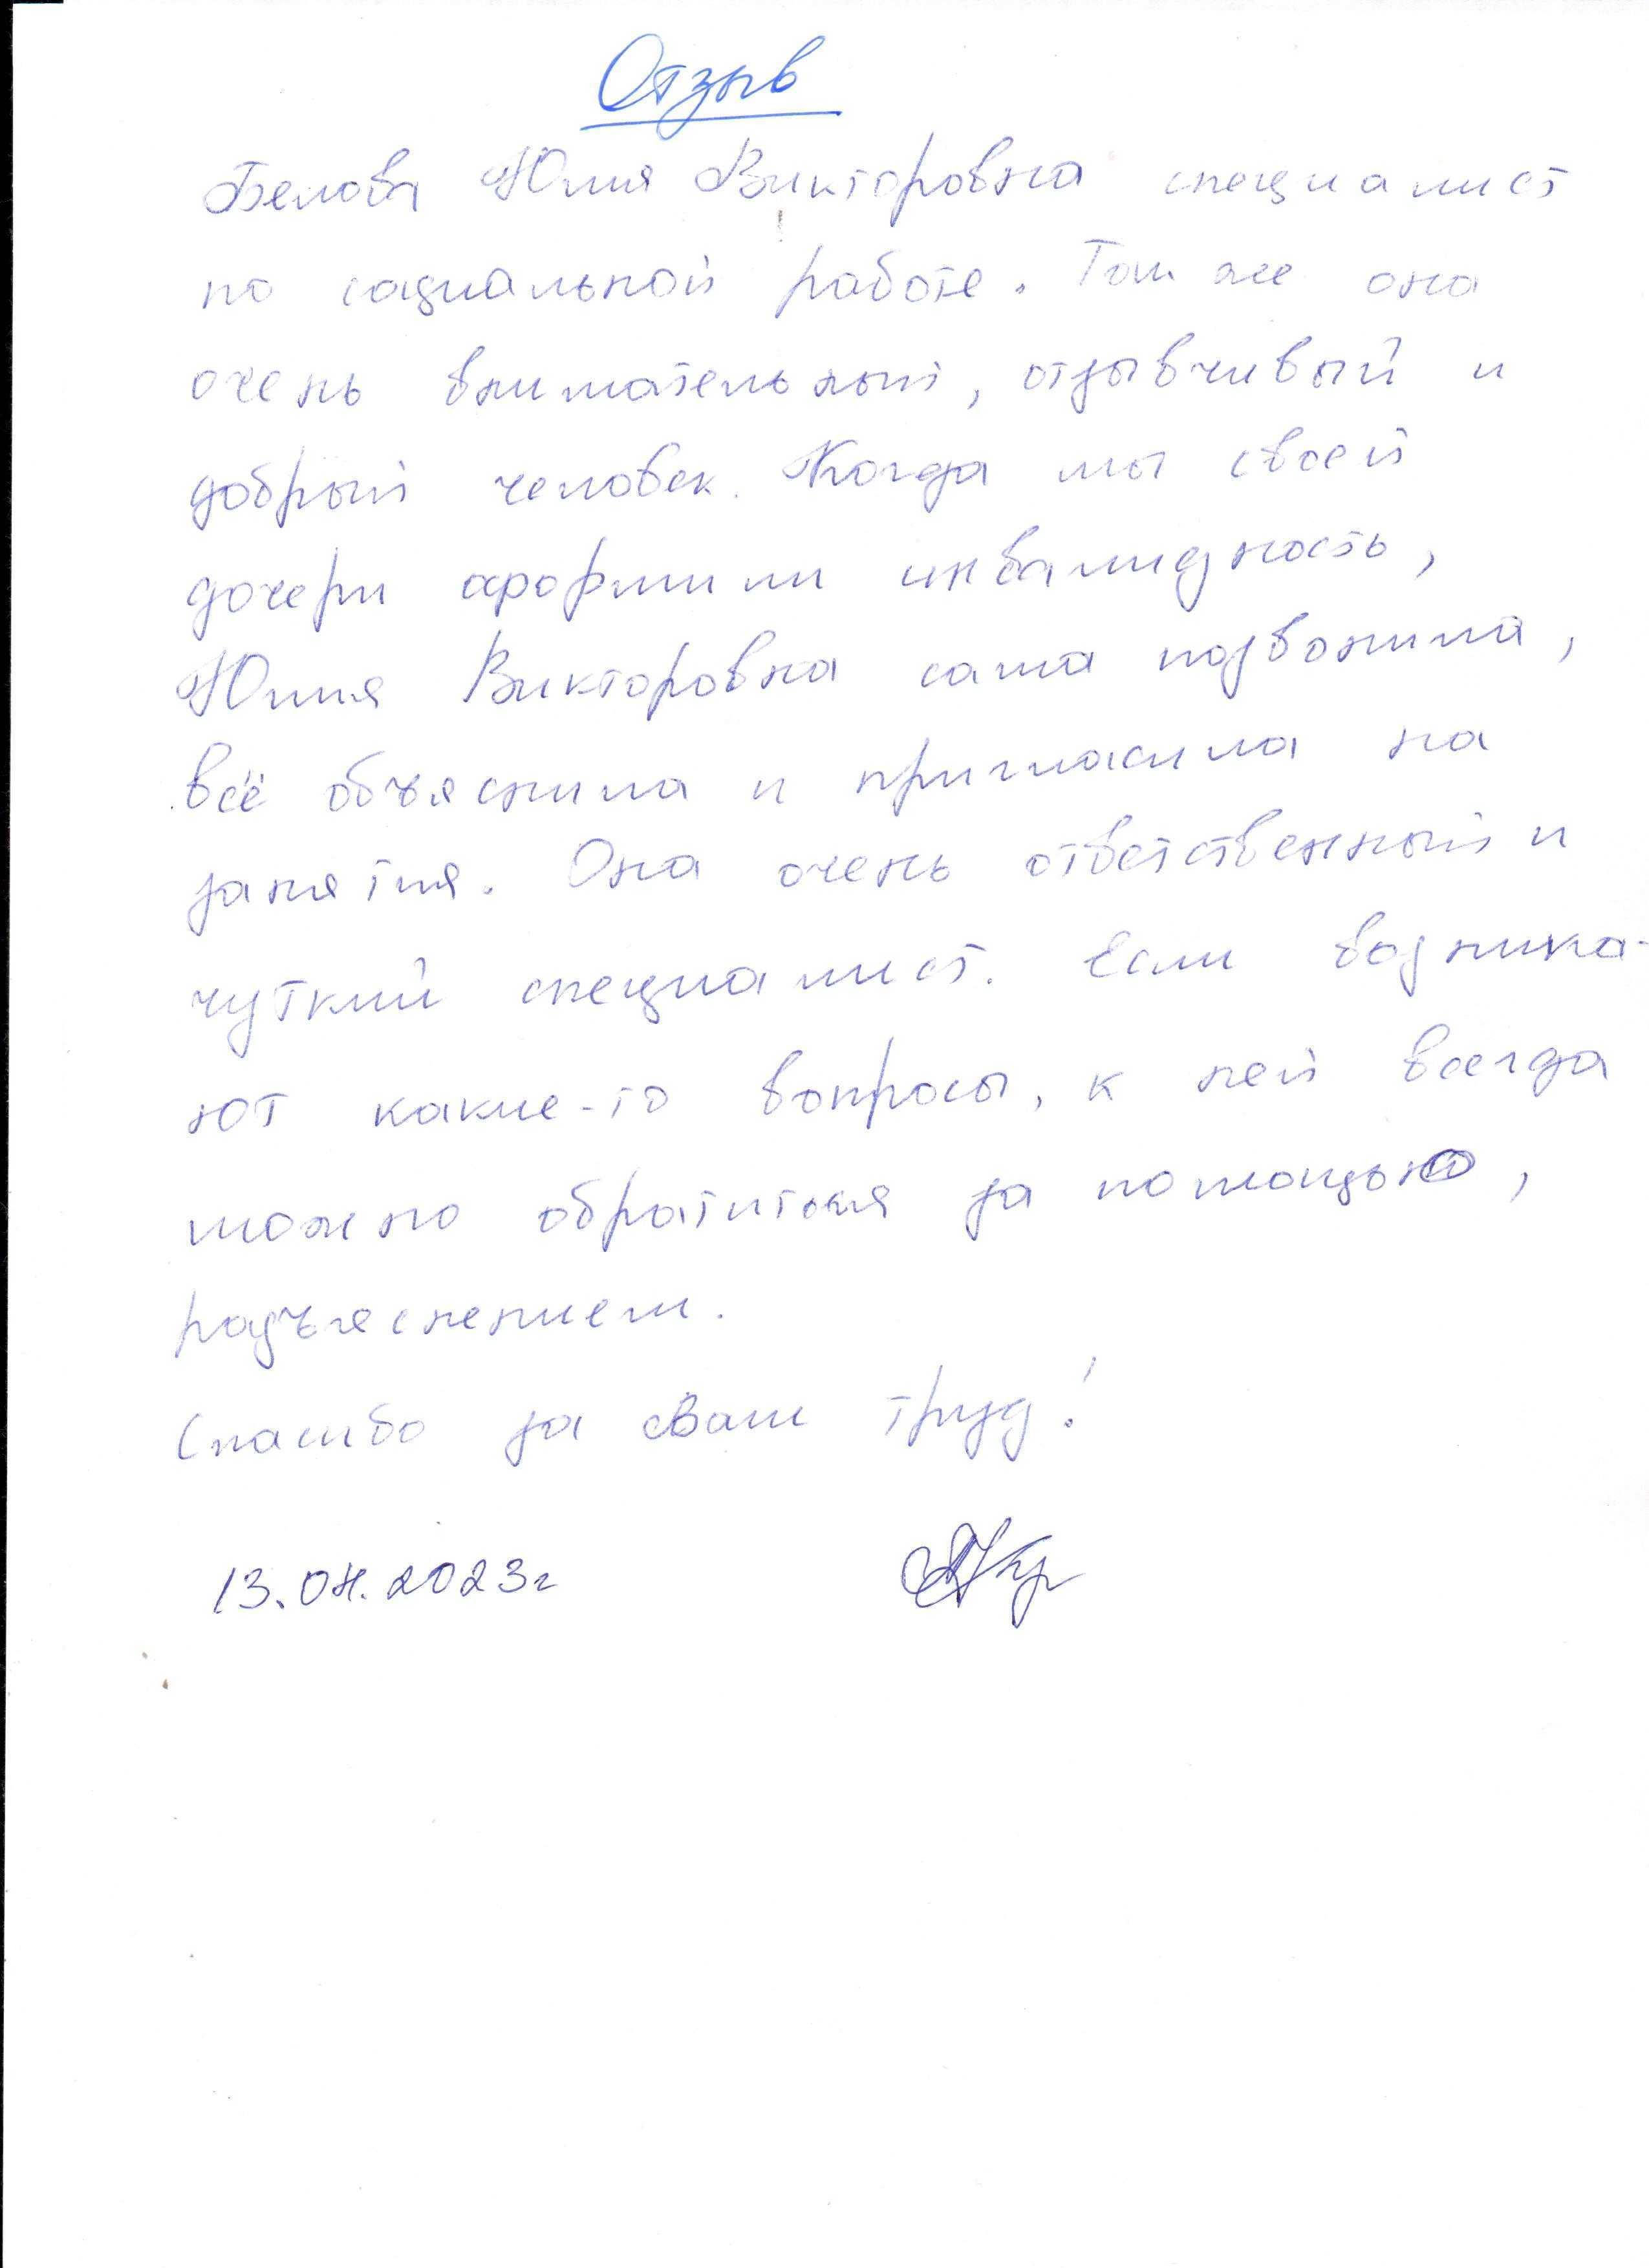 Отзыв
Белова Юлия Викторовна специалист
по социальной работе. Так же она
очень внимательный, отзывчивый и
добрый человек. Когда мы своей
дочери оформили инвалидность,
Юлия Викторовна сама позвонила,
всё объяснила и пригласила на
занятия. Она очень ответственный и
чуткий специалист. Если возника-
ют какие-то вопросы, к ней всегда
можно обратиться за помощью,
разъяснением.
Спасибо за Ваш труд!
13.04.2023г